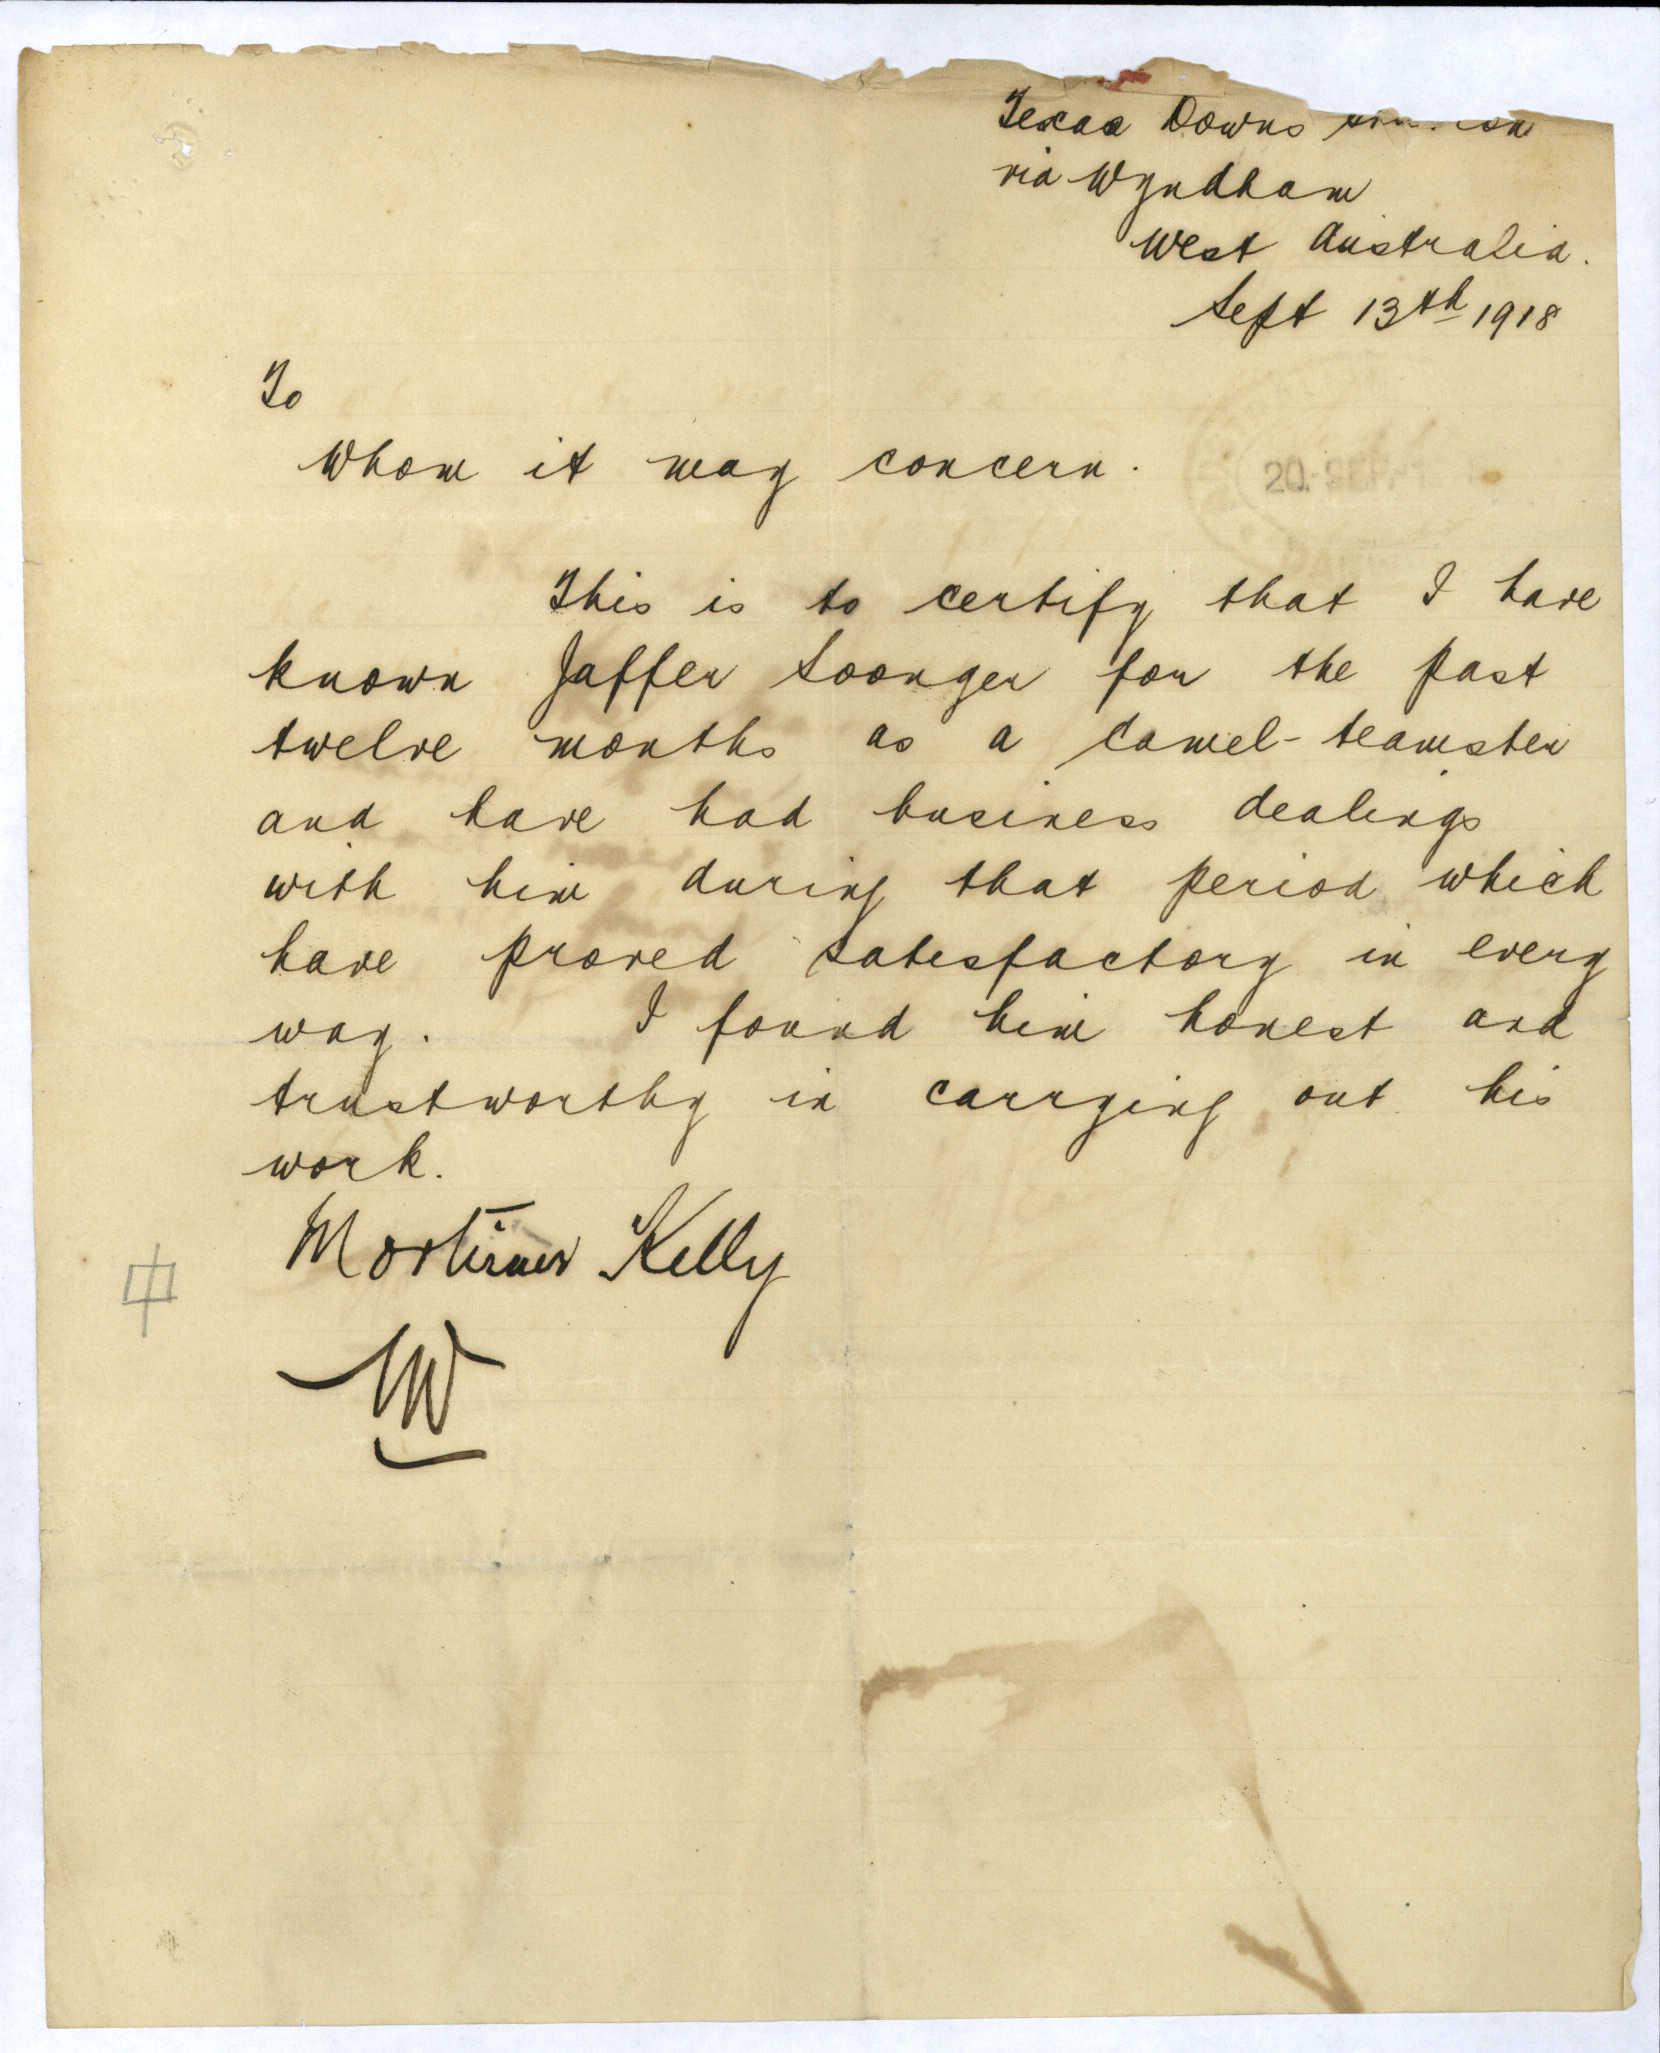 Texas Downs
via Wyndham
West Australia.
Sept 13th 1918
To
Whom it may concern.
20. SEP
This is to certify that I have
known Jaffer Soonger for the past
twelve months as a camel-teamster
and have had business dealings
with him during that period which
have proved satesfactory in every
way. I found him honest and
trustworthy in carrying out his
work.
Mortimer Kelly